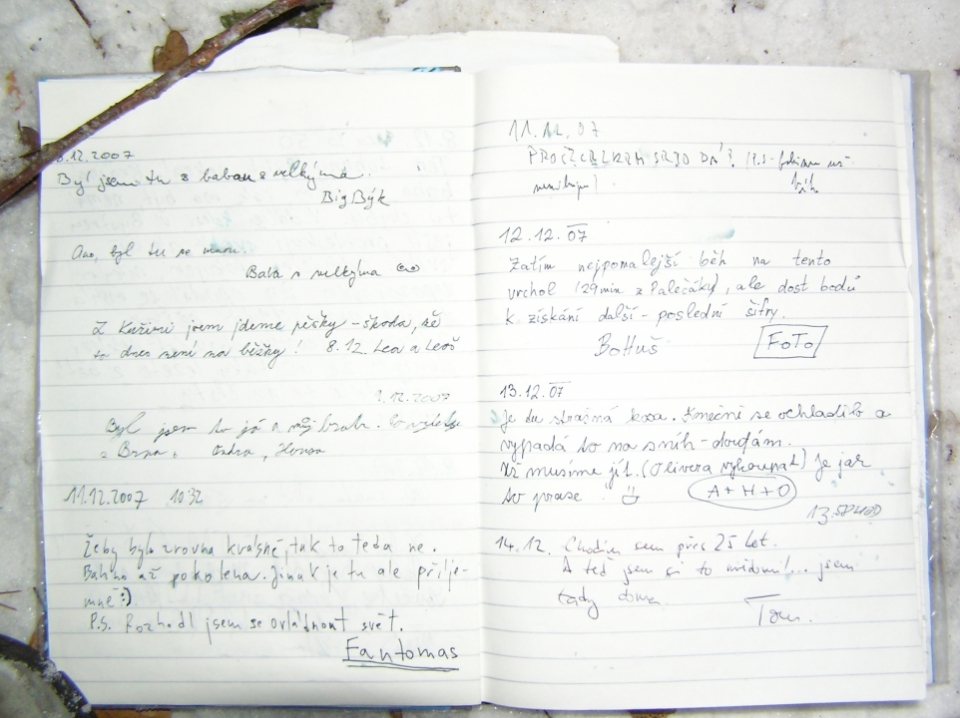 8.12.2007
Byl jsem tu s babou s velkýma
Big Býk
Ano, byl tu se mnou.
Baba s velkýma
Z Kuřimi jsem jdeme pěšky - škoda, že
to dnes není na běžky! 8.12. Lea a Leoš
12.2007
Byl jsem tu já a můj brácha.
z Brna, Ondra, Honza
11.12.2007 10:32
Žeby bylo zrovna krásně, tak to teda ne.
Bahno až po kolena. Jinak je tu ale příje-
mně :)
P.S. Rozhodl jsem se ovládnout svět.
Fantomas
11.12.07
12.12.07
Zatím nejpomalejší běh na tento
vrchol (29min z Palečáky), ale dost bodů
k získání další - poslední šifry.
BoHuš FoTo
13.12.07
Je tu strašná kosa. Konečně se ochladilo a
vypadá to na sníh - doufám.
Už musíme jít. (Olivera vykoupat) Je jak
to prase.
A+H+O
14.12. Chodím sem přes 25 let.
A teď jsem si to uvědomil... jsem
tady doma.
Tom.